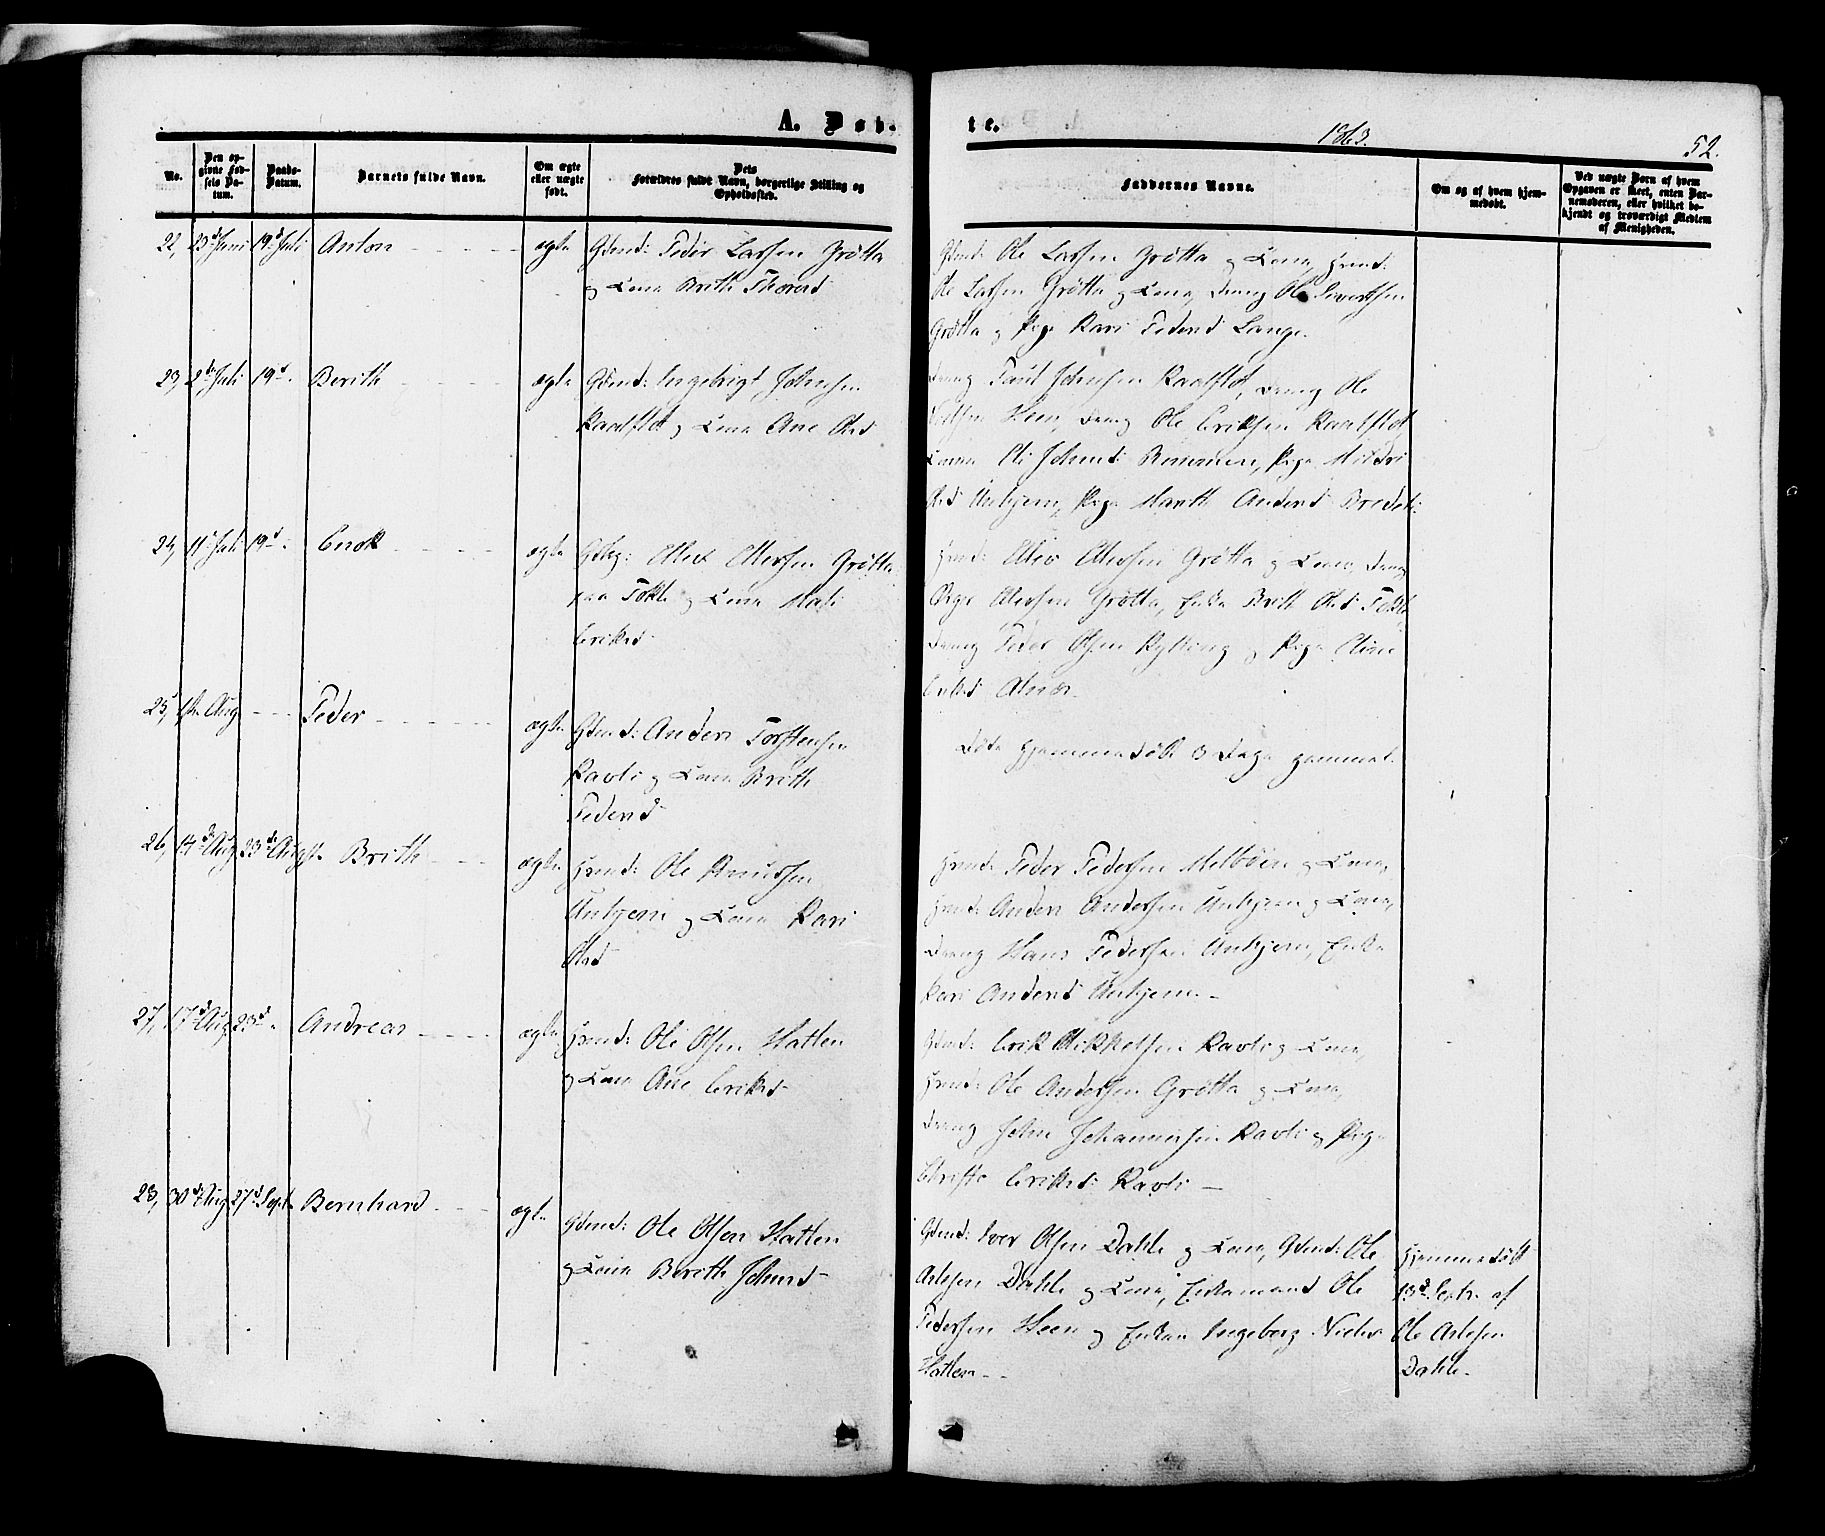 A. Døb-
te.
1863.
52.
No.
Den opgivne Fødsels Datum.
Daabs-Datum.
Barnets fulde Navn.
Om ægte eller uægte født.
Dets Forældres fulde Navn, borgerlige Stilling og Opholdssted.
Faddernes Navne.
Om og af hvem hjemmedøbt.
Ved uægte Børn af hvem Opgaven er skeet, enten Barnemoderen, eller hvilket bekjendt og troværdigt Medlem af Menigheden.
22, 23d Juni 19d Juli Anton ægte Gbmd: Peder Larsen Grøtta
og Kone Brith Thored
Gbmd: Ole Larsen Grøtta og Kone, Hmd:
Ole Larsen Grøtta og Kone, Dreng Ole Sivertsen
Grøtta og Pige Kari Pedersd Lange.
23, 2de Juli 19d. Berith ægte Gbmd: Ingebrigt Johnsen
Raaflot og Kone Ane Olsd
Dreng Poul Johnsen Raaflot, Dreng Ole
Nilsen Heen, Dreng Ole Eriksen Raaflot
Kone Johnsd: Pige Mildri
Olsd Unhjem, Pige Marith Andersd Bredeli.
24, 11 Juli 19d. Enok ægte Ottersen Grøtta
paa og Kone Mali
Eriksd
Hmd: Ottersen Grøtta og Kone, Dreng
Ottersen Grøtta, Enke Britt Olsd
Dreng Peder Olsen Rypting og Pige
Eriksd
25, Aug. Peder ægte Gbmd: Anders Torstensen
Ravli og Kone Brith
Pedersd
Døde hjemmedøbt 3 Dage gammel.
26, 14d Aug. 23de August. Brith ægte Hmd: Ole Knudsen
Unhjem og Kone Kari
Olsd
Hmd: Peder Pedersen Melbøen og Kone,
Hmd: Anders Andersen Unhjem og Kone,
Dreng Hans Pedersen Unhjem, Enke
Kari Andersd Unhjem.
27, 17d Aug. 23d. Andreas ægte Hmd: Ole Olsen Hatlen
og Kone Ane Eriksd
Gbmd: Erik Mikkelsen Ravli og Kone,
Hmd: Ole Andersen Grøtta og Kone,
Dreng John Johannesen Ravli og Pige
Eriksd: Ravli
28, 30d Aug. 27d Sept. Bernhard ægte Gbmd: Ole Olsen Hatlen
og Kone Berith Johnsd
Gbmd: Iver Olsen Dahle og Kone, Gbmd: Ole
Aslesen Dahle og Kone, Enkemand Ole
Pedersen Heen og Enken Ingeborg
Hatlen
Hjemmedøbt
13d Septr. af
Ole Aslesen
Dahle.